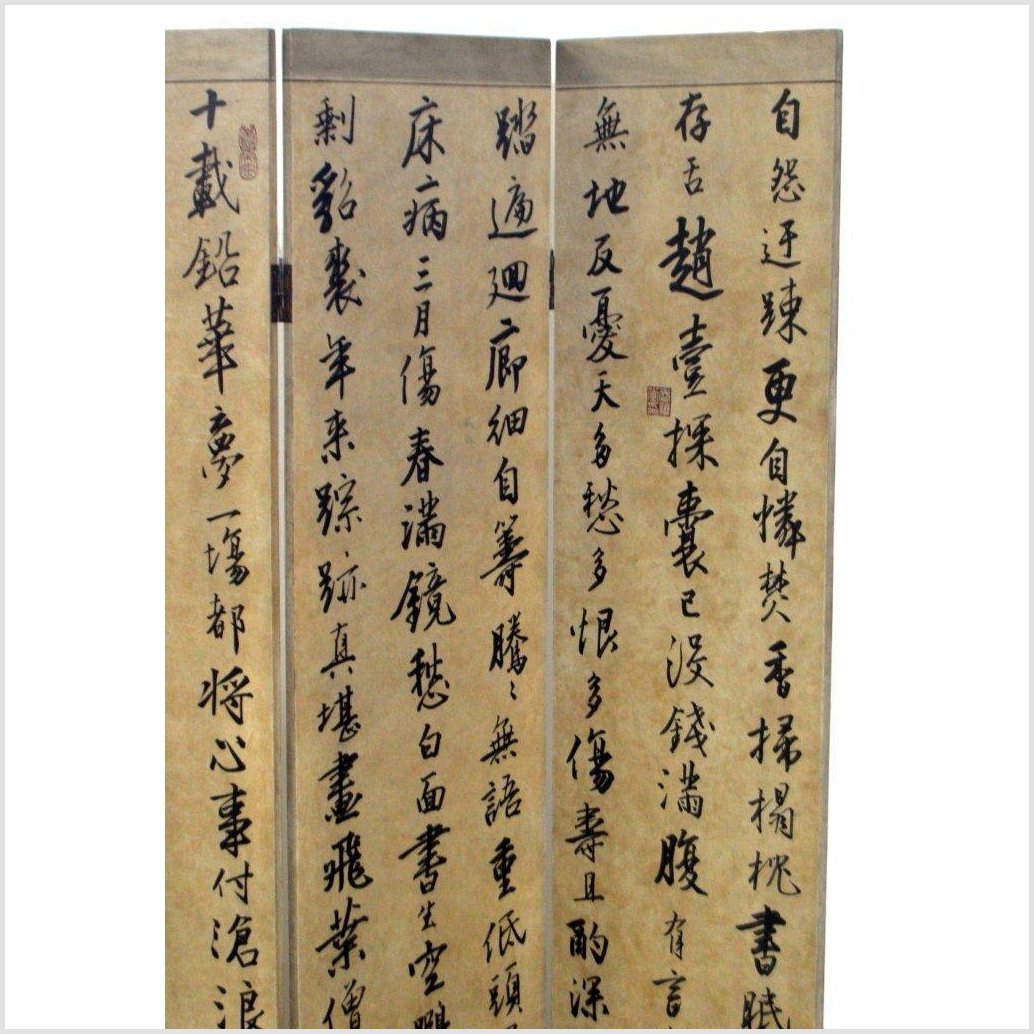 自怨迂疎更自憐焚香掃榻枕書眠
存舌趙壹探囊已没錢滿腹有言
無地反憂天多愁多恨多傷壽且酌深
踏遍迴廊細自籌騰騰無語重低頭
床病三月傷春滿鏡愁白面書生空
剩貂裘年来踪跡真堪畫飛葉僧
十載鉛華夢一場都將心事付滄浪